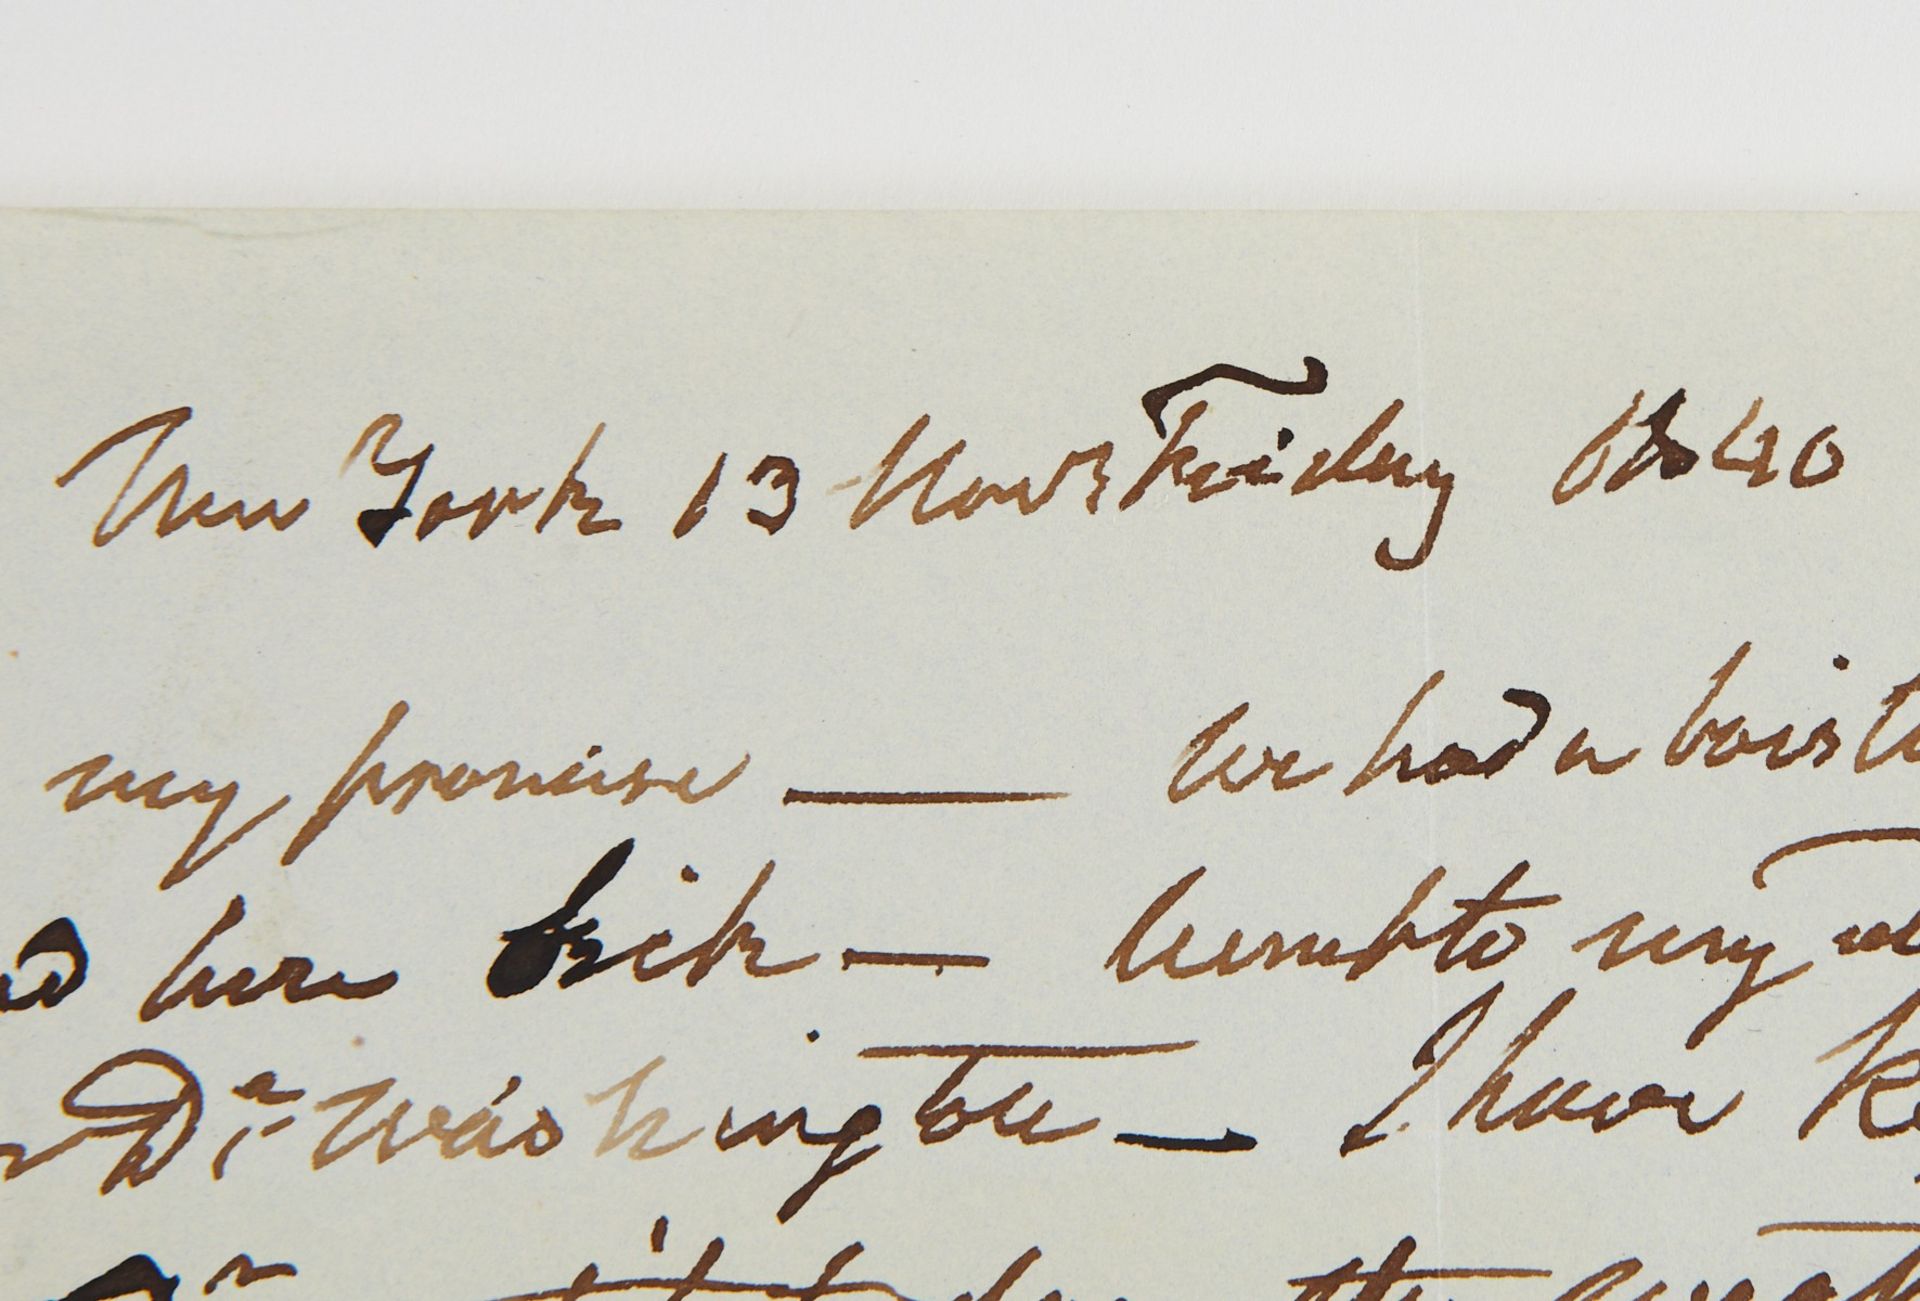 New York 13 Novr Friday 1840
my promise — we had a boist
here sick — went to my
Dr. Washington — I have
the